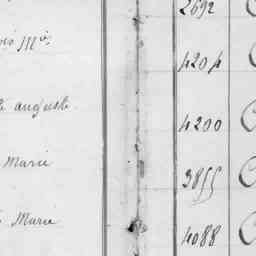 2692
4204
auguste
4200
Marie
3855
Marie
4088